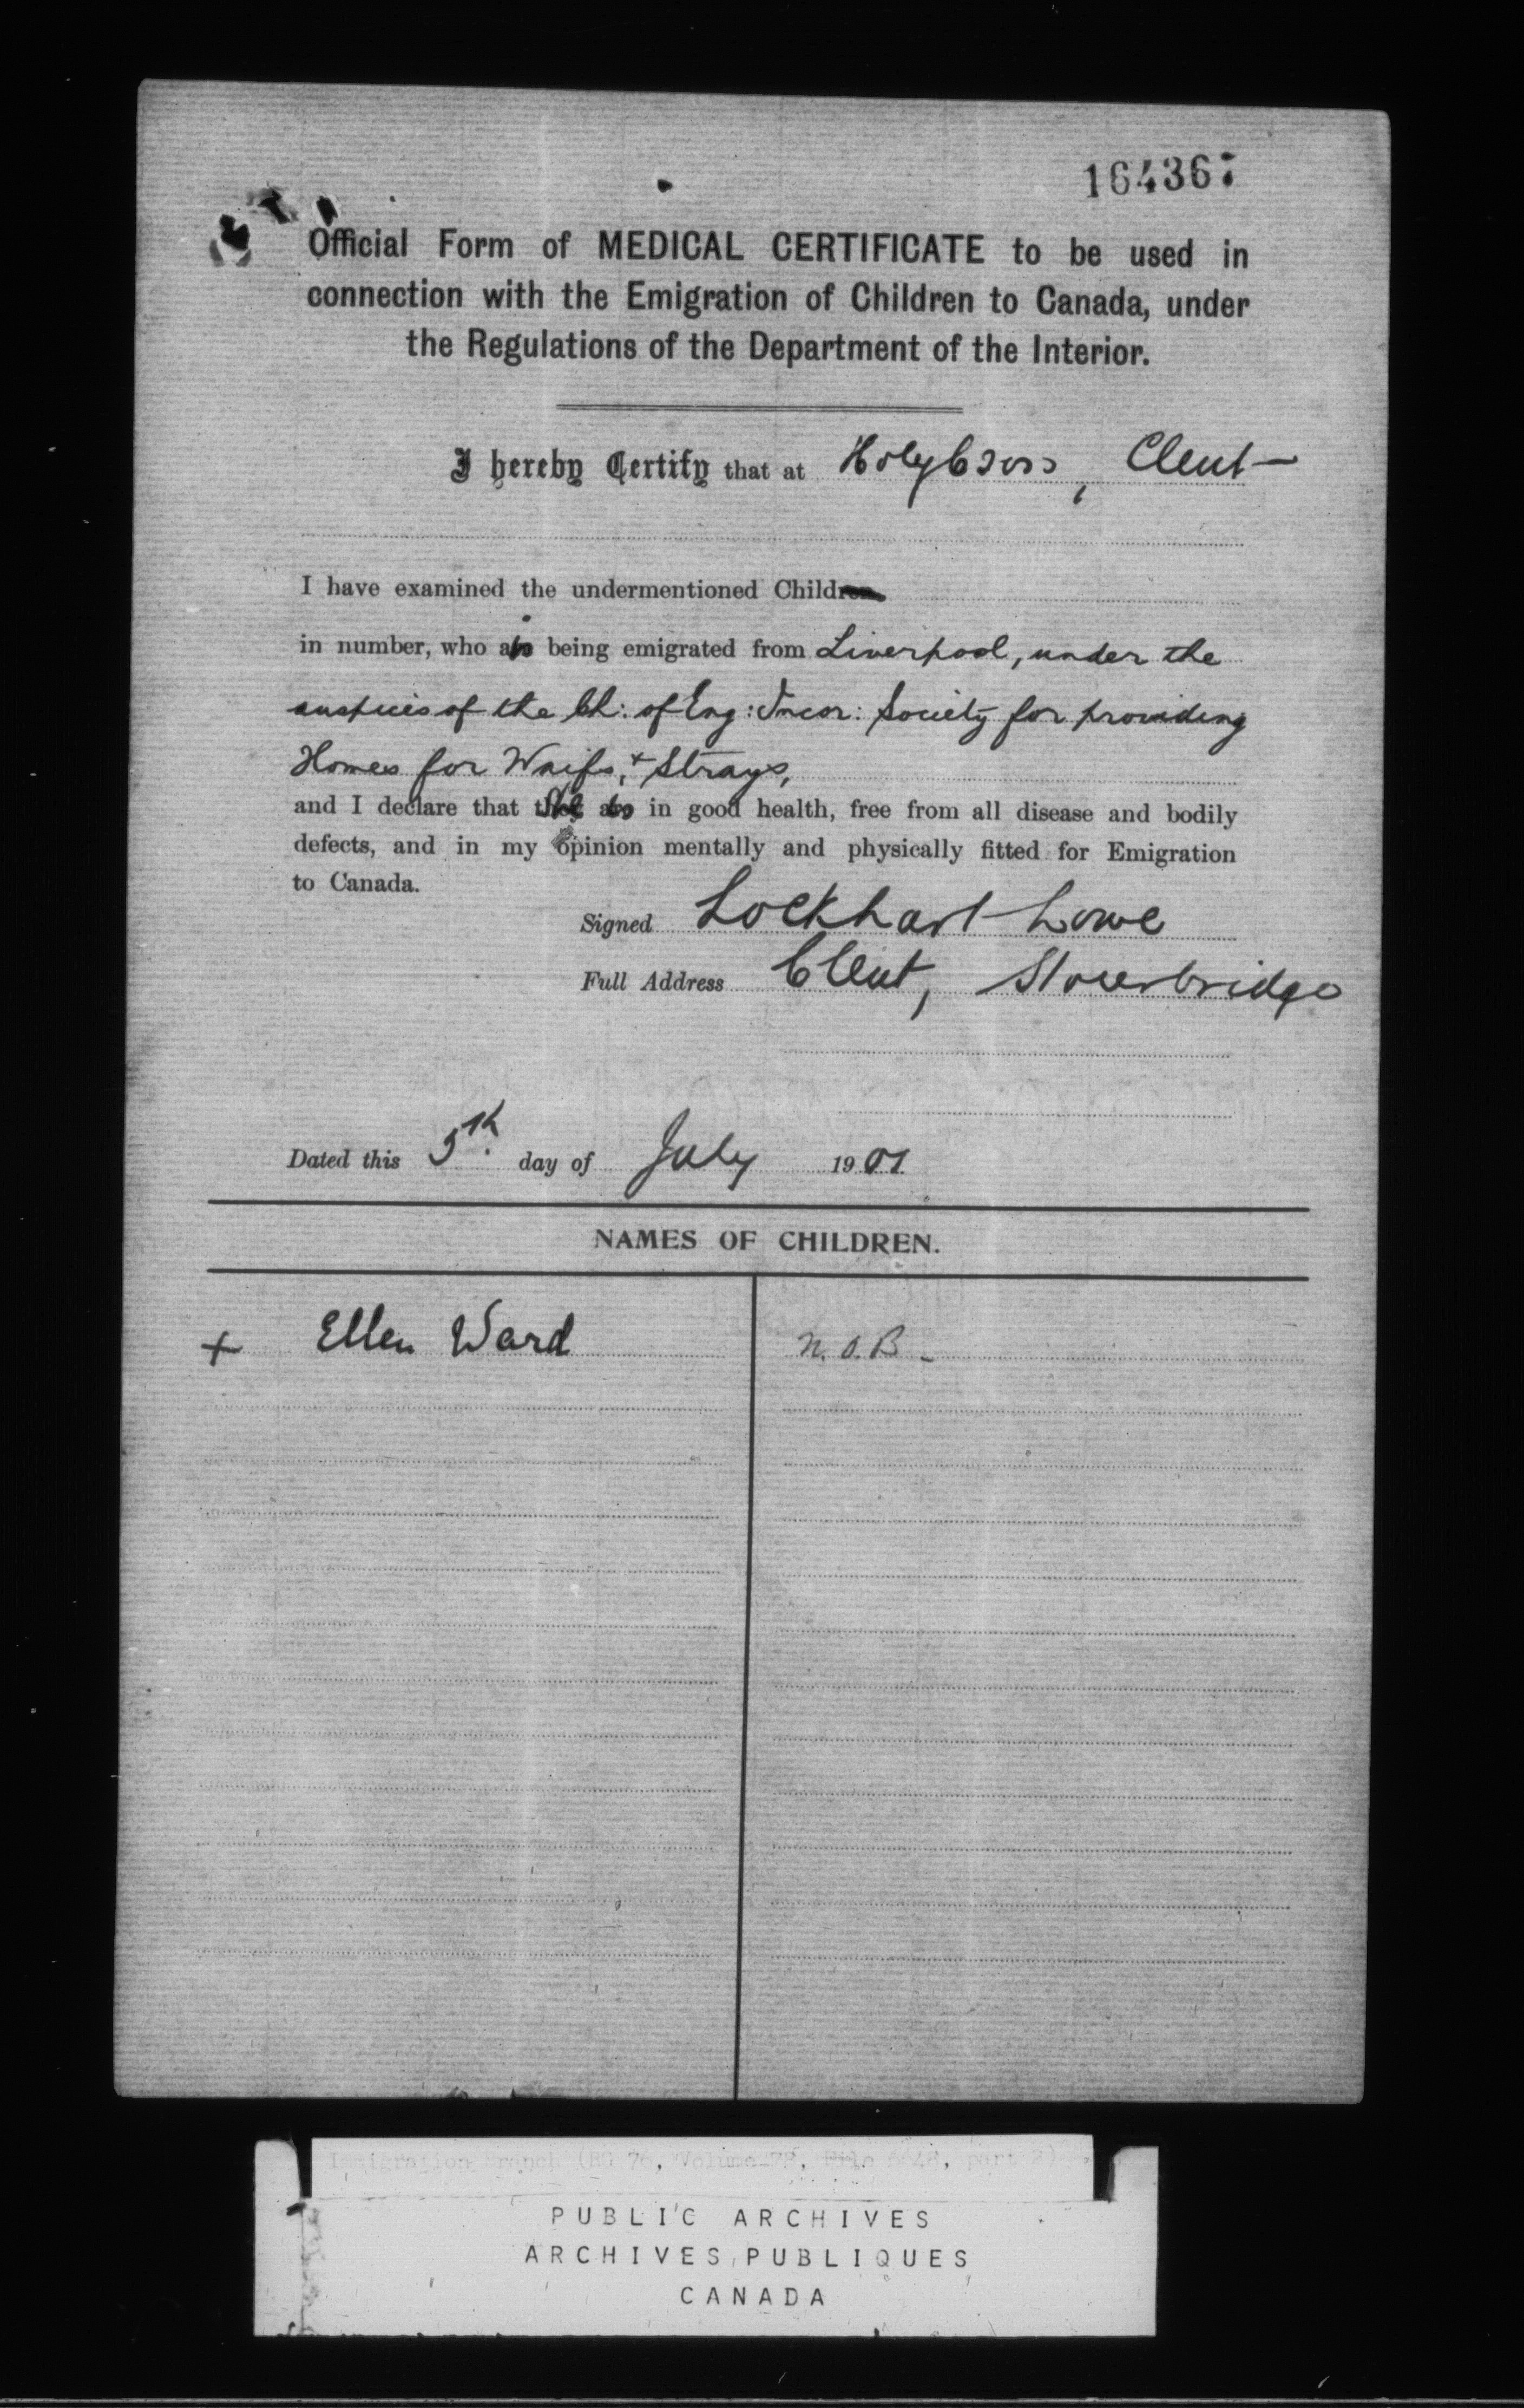 164367
Official Form of MEDICAL CERTIFICATE to be used in
connection with the Emigration of Children to Canada, under
the Regulations of the Department of the Interior.
I hereby Certify that at Holy Cross, Clent
I have examined the undermentioned Child
in number, who is being emigrated from Liverpool, under the
auspices of the Ch: of Eng: Incor: Society for providing
Homes for Waifs, + Strays,
and I declare that She is in good health, free from all disease and bodily
defects, and in my opinion mentally and physically fitted for Emigration
to Canada.
Signed Lockhart Lowe
Full Address Clent, Stourbridge
Dated this 5th. day of July 1901
NAMES OF CHILDREN.
+ Ellen Ward
N. O. B -
Immigration Branch (RG 76, Volume 78, File 6648, part 2)
PUBLIC ARCHIVES
ARCHIVES PUBLIQUES
CANADA